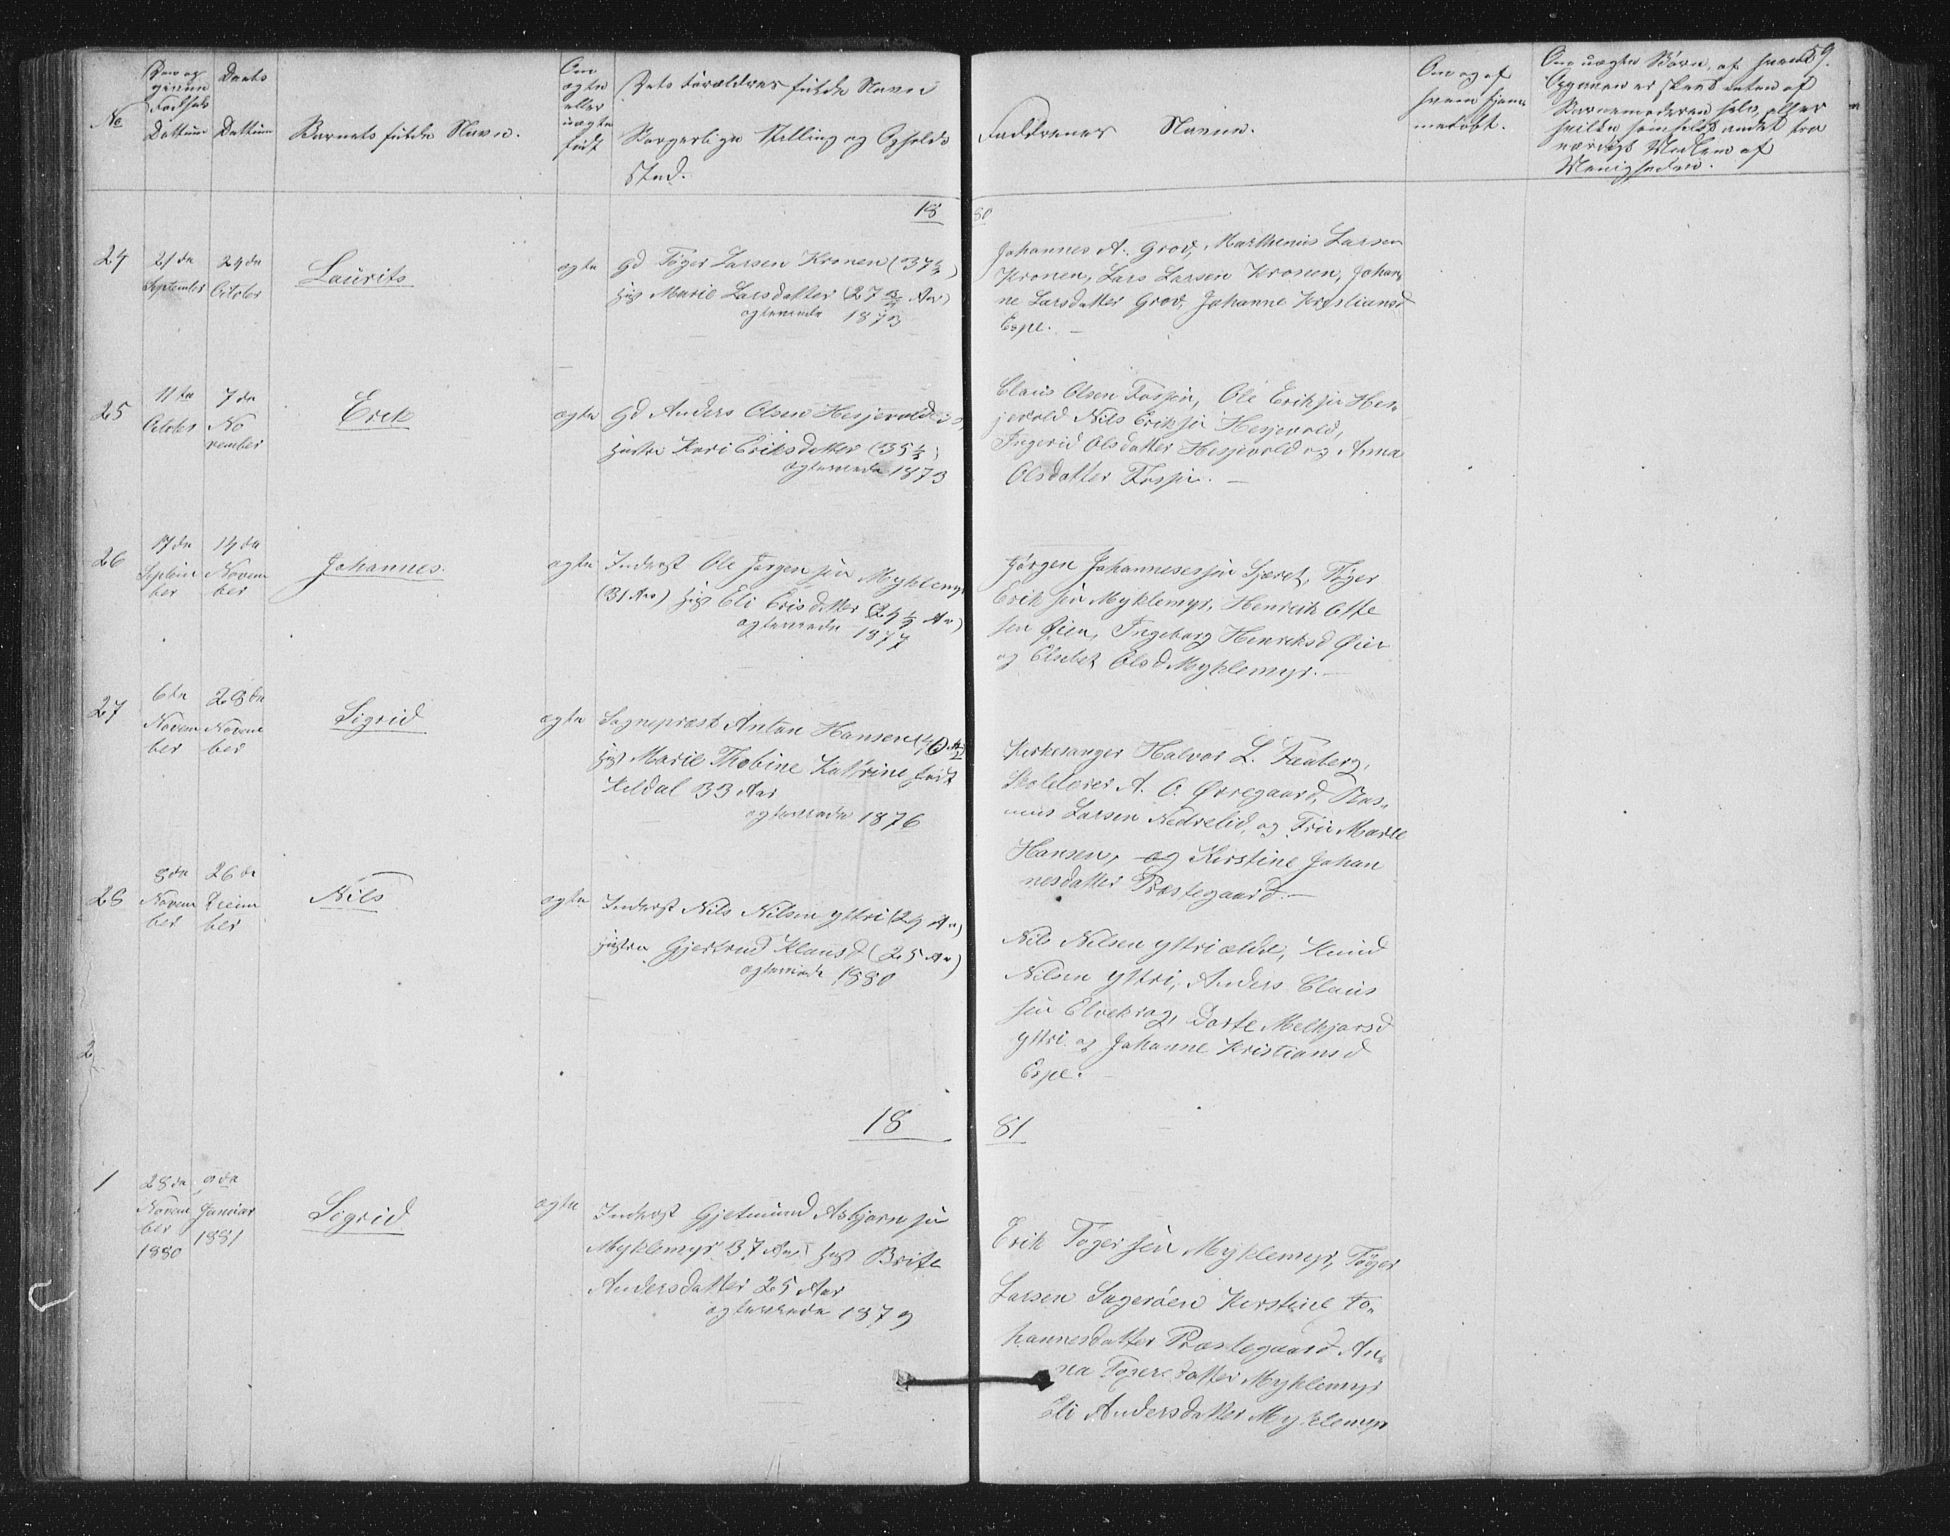 59.
No
Dag og
Daabs
Fødsels
Dattum
Dattum
Barnets fulde Navn.
Om
ægte
eller
uægte
født
Dets Forældres fulde Navn
Borgerlige Stilling og Opholds
Sted.
Faddrenes Navne.
Om og af
hvem hjem-
medøbt.
Om uægte Børn, af hvem
Opgaven er skeet enten af
Barnemoderen selv, eller
Medlem af
Menigheden.
18 80
24
21de
September
24de
October
Laurits
ægte
Gd Tøger Larsen Kronen (37 ½)
Marie Larsdatter (27 Aar)
ægteviede 1873
Johannes A. Grov, Marthenus Larsen
Kronen, Lars Larsen Kronen, Johan-
ne Larsdatter Grov, Johanne Kristiansd
Espe. —
25
11te
October
7de
No
vember
Erik
ægte
Gd Anders Olsen Hesjevold
Hustru Kari Eriksdatter (35 ½)
ægteviede 1873
Claus Olsen Fossøn, Ole Eriksen Hes-
jevold Nils Eriksen Hesjevold,
Ingerid Olsdatter Hesjevold og Anna
Olsdatter Fossøn. —
26
17de
Septem
ber
14de
Novem
ber
Johannes.
ægte
Inderst Ole Jørgensen Myklemyr
(31 Aar) Eli Erisdatter (24 ½ Aar)
ægteviede 1877
Jørgen Johannesessen Sjøret, Tøger
Eriksen Myklemyr, Henrik Otte
sen Øien, Ingeborg Henriksd Øien
og Elsebet Olsd Myklemyr. —
27
6te
Novem
ber
28de
Novem
ber
Sigrid
ægte
Sognepræst Anton Hansen
Marie Thobine Kathrine født
Keldal 33 Aar
ægteviede 1876
Kirkesanger Halvor L. Faaberg,
Skolelærer A. O. Ørregaard, Ras-
mus Larsen Nedrelid, og Frue Marie
Hansen, og Kirstine Johan
nesdatter Præstegaard. —
28
8de
Novem
ber
26de
Decem
ber
Nils
ægte
Inderst Nils Nilsen Yttri (24 Aar)
Hustru Gjertrud Klausd (25 Aar)
ægteviede 1880
Nils Nilsen Yttri ældre, Knud
Nilsen Yttri, Anders Claus
sen Elvekrog, Dorte Melkjorsd
Yttri og Johanne Kristiansd
Espe. —
2
18 81
1
28de
Novem
ber
1880
9de
Januar
1881
Sigrid
ægte
Inderst Gjetmund Asbjørnsen
Myklemyr 37 Aar, Brite
Andersdatter 25 Aar
ægteviede 1879
Erik Tøgersen Myklemyr, Tøger
Larsen Sagerøen Kirstine Jo-
hannesdatter Præstegaard An-
na Tøgersdatter Myklemyr
Eli Andersdatter Myklemyr